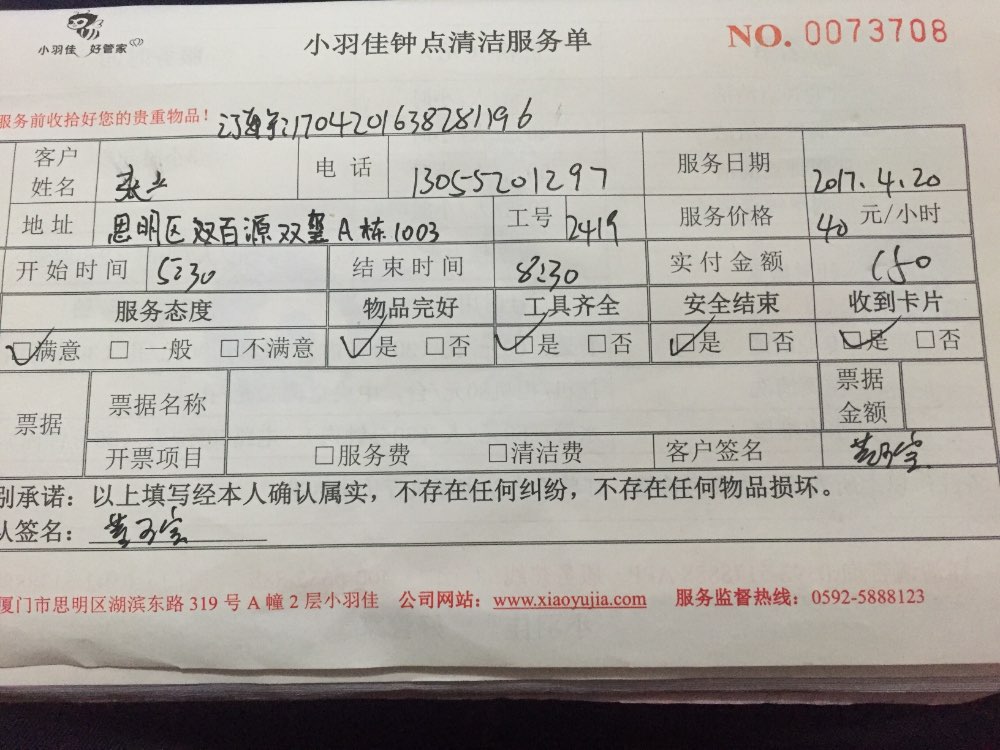 小羽佳 好管家
小羽佳钟点清洁服务单
NO. 0073708
服务前收拾好您的贵重物品！
1704201638281196
客户姓名 电话 13055201297 服务日期 2017.4.20
地址 思明区双百源双玺A栋1003 工号 2419 服务价格 40 元/小时
开始时间 5:30 结束时间 8:30 实付金额
服务态度 物品完好 工具齐全 安全结束 收到卡片
☑满意 □ 一般 □不满意 ☑是 □否 ☑是 □否 ☑是 □否 ☑是 □否
票据 票据名称 票据金额
开票项目 □服务费 □清洁费 客户签名
别承诺：以上填写经本人确认属实，不存在任何纠纷，不存在任何物品损坏。
人签名：
厦门市思明区湖滨东路 319 号 A 幢 2 层小羽佳 公司网站：www.xiaoyujia.com 服务监督热线：0592-5888123